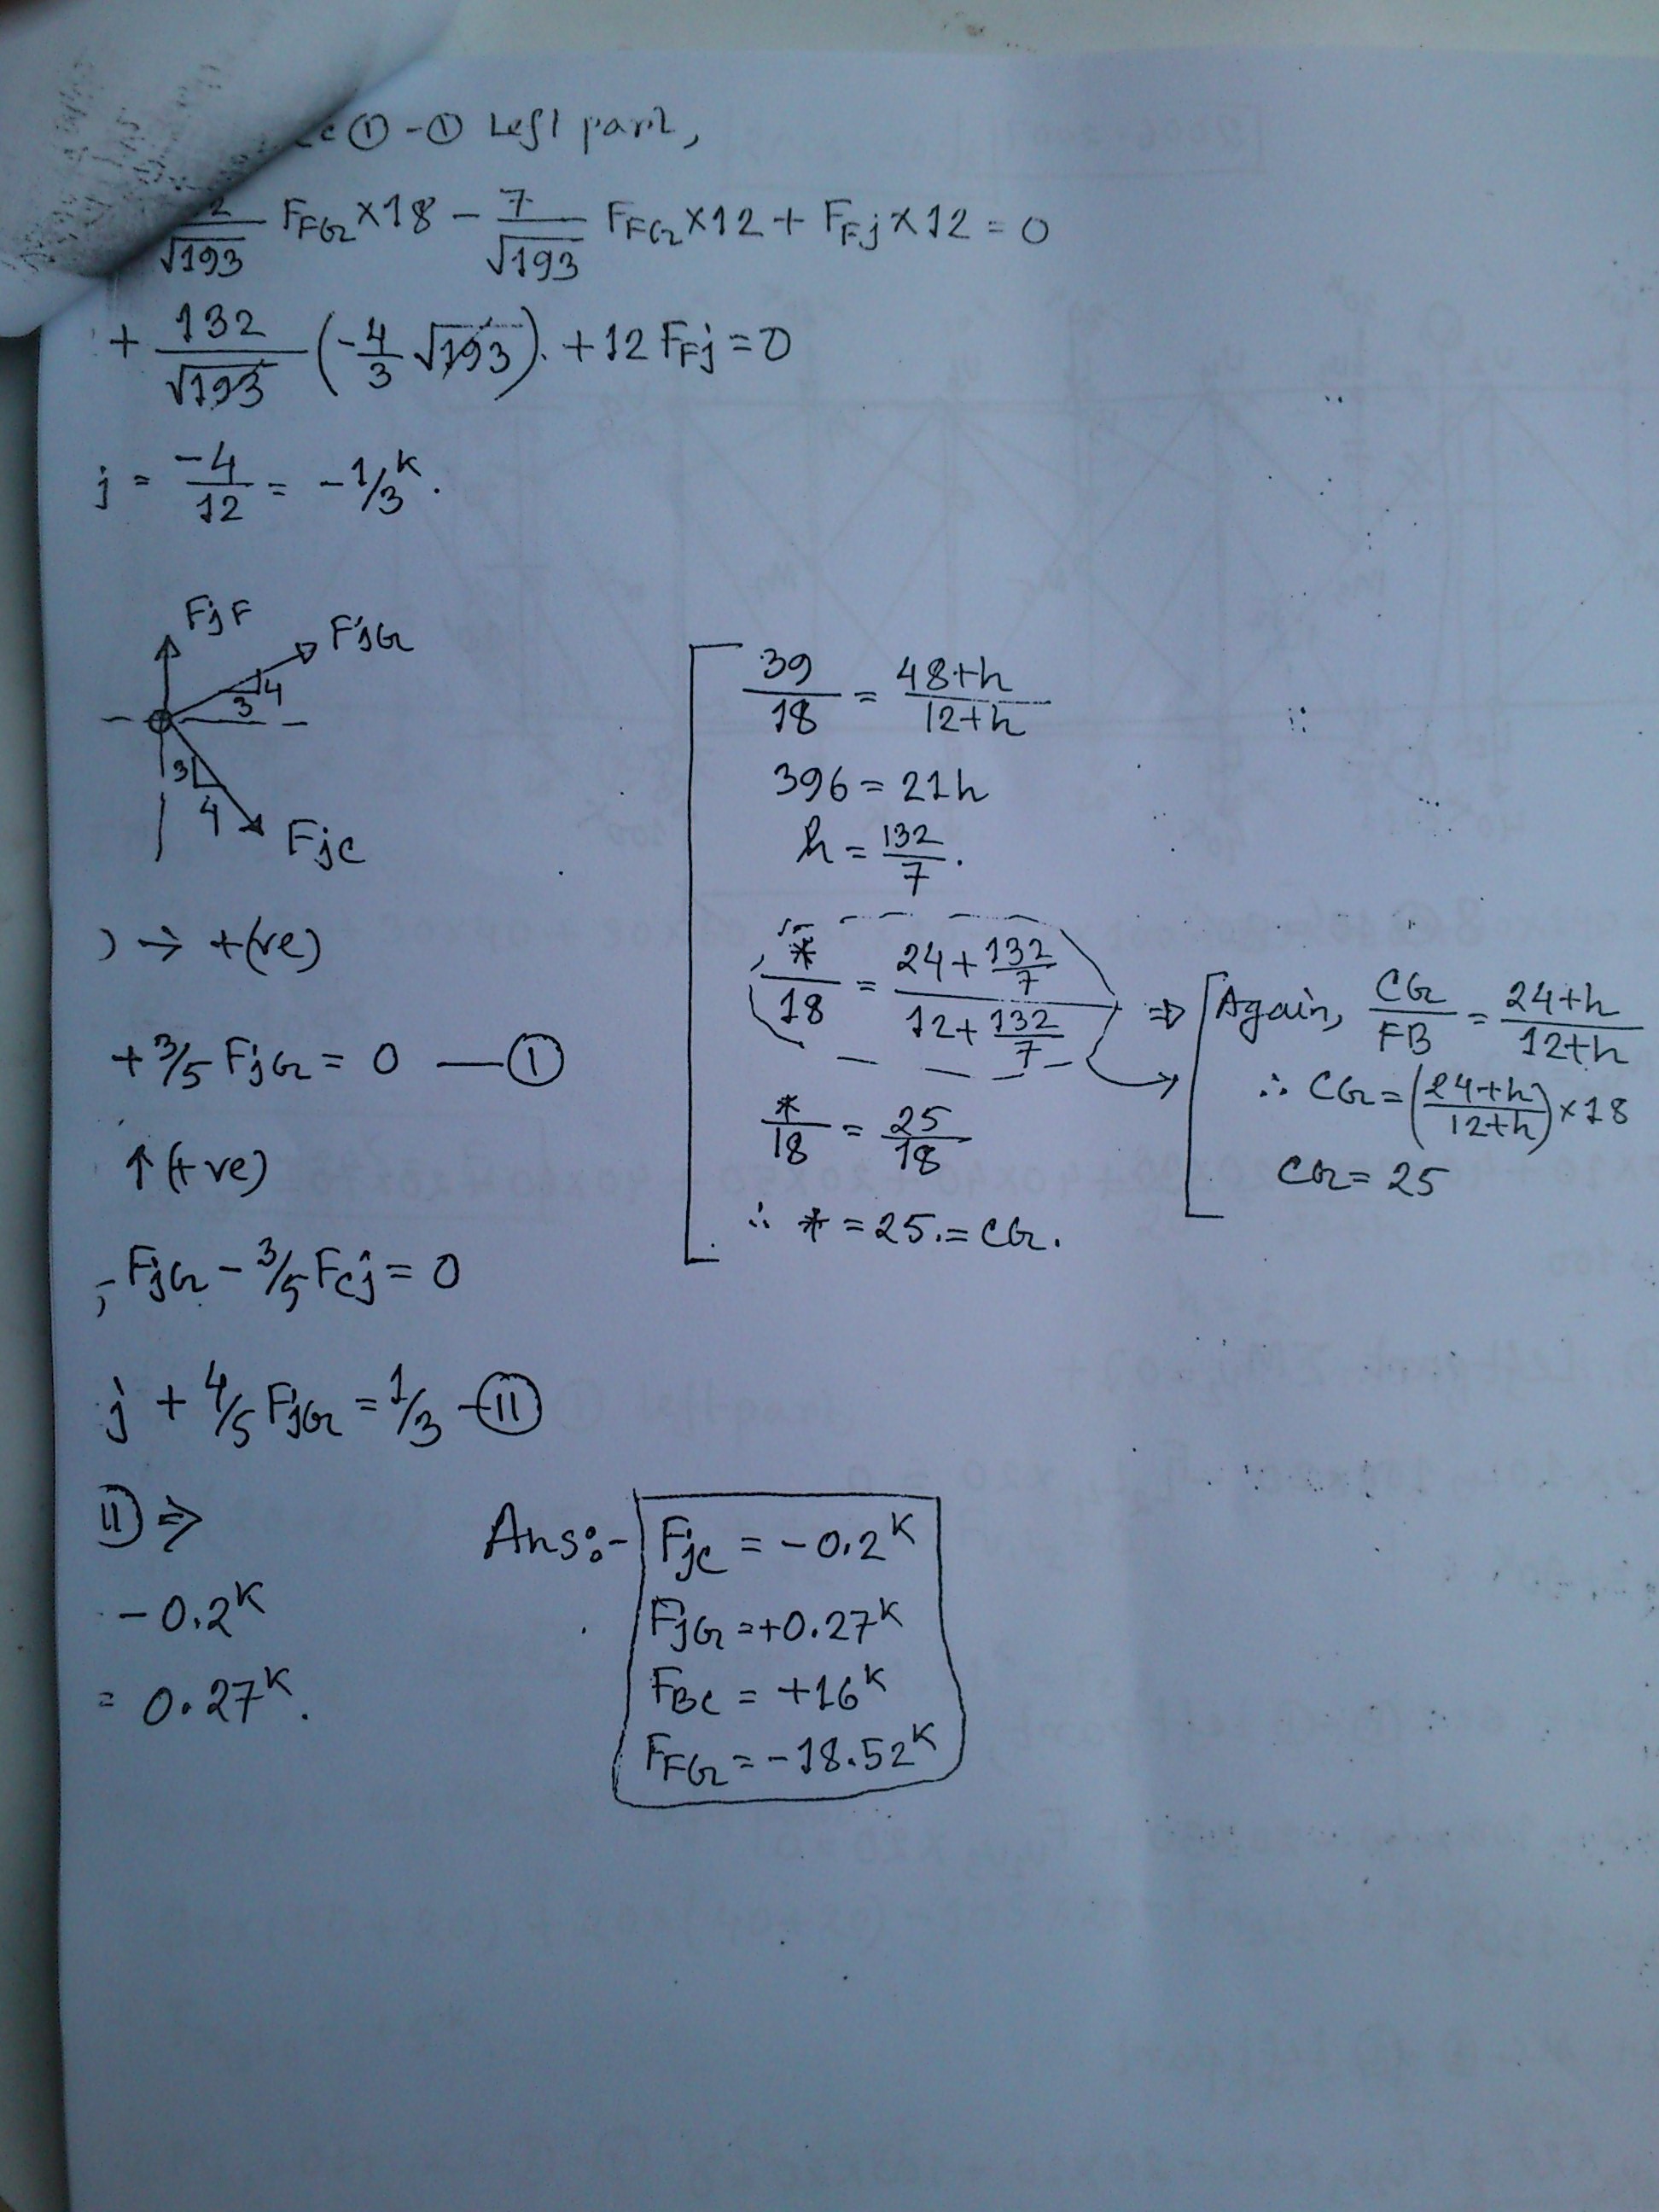 ① - ① Left part,
/√193 F_FG × 18 - 7/√193 F_FG × 12 + F_Fj × 12 = 0
+ 132/√193 (-4/3 √193) + 12 F_Fj = 0
j = -4/12 = -1/3 ᵏ.
FjF
FjG
3
4
3
4
Fjc
→ +(ve)
+ 3/5 FjG = 0 — ①
↑ (+ve)
FjG - 3/5 Fcj = 0
j + 4/5 FjG = 1/3 - ⑪
⑪ ⇒
-0.2ᴷ
= 0.27ᴷ.
39/18 = 48+h/12+h
396 = 21h
h = 132/7.
*/18 = 24+132/7 / 12+132/7
*/18 = 25/18
∴ * = 25. = CG.
⇒ Again, CG/FB = 24+h/12+h
∴ CG = (24+h/12+h) × 18
CG = 25
Ans:- Fjc = -0.2ᴷ
FjG = +0.27ᴷ
F_BC = +16ᴷ
F_FG = -18.52ᴷ